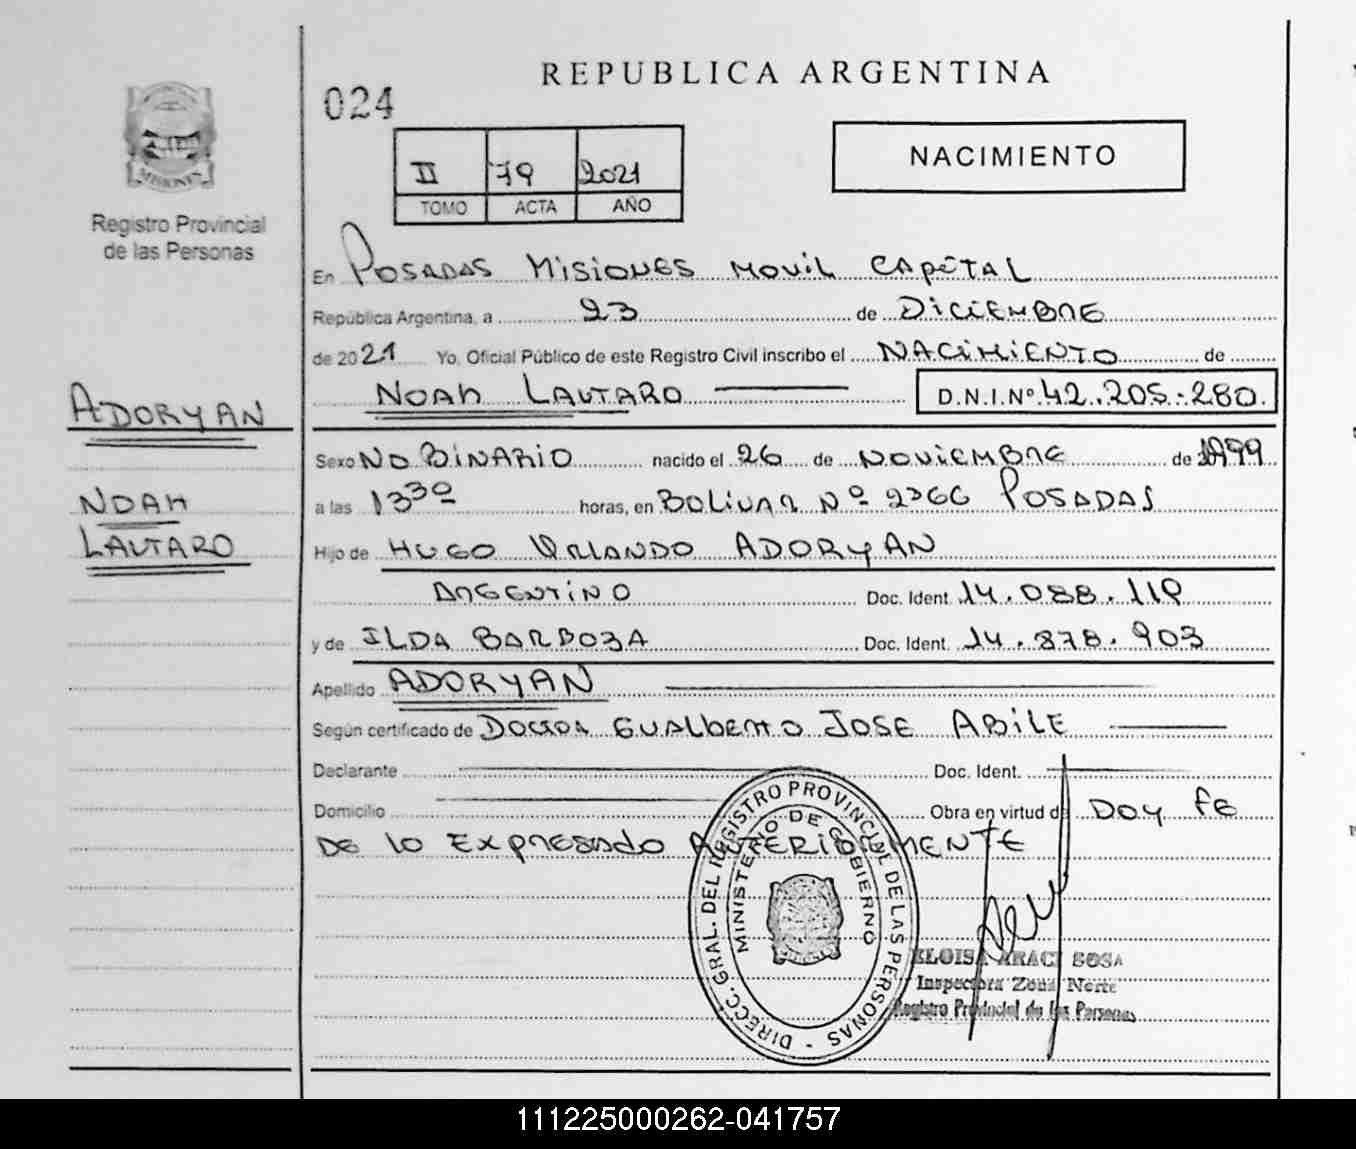 REPUBLICA ARGENTINA
024
NACIMIENTO
II 79 2021
TOMO ACTA AÑO
MISIONES
Registro Provincial
de las Personas
En POSADAS MISIONES MOVIL CAPITAL
República Argentina, a 23 de DICIEMBRE
de 2021 Yo, Oficial Público de este Registro Civil inscribo el NACIMIENTO de
NOAH LAUTARO D.N.I. Nº 42.205.280.
ADORYAN
NOAH
LAUTARO
Sexo NO BINARIO nacido el 26 de NOVIEMBRE de 1999
a las 13 30 horas, en BOLIVAR Nº 2366 POSADAS
Hijo de HUGO ORLANDO ADORYAN
ARGENTINO Doc. Ident. 14.088.119
y de ILDA BARBOZA Doc. Ident. 14.878.903
Apellido ADORYAN
Según certificado de DOCTOR GUALBERTO JOSE ABILE
Declarante Doc. Ident.
Domicilio Obra en virtud de DOY FE
DE LO EXPRESADO ANTERIORMENTE
DIRECC. GRAL. DEL REGISTRO PROVINCIAL DE LAS PERSONAS -
MINISTERIO DE GOBIERNO
ELOISA ARACI SOSA
Inspectora Zona Norte
Registro Provincial de las Personas
111225000262-041757